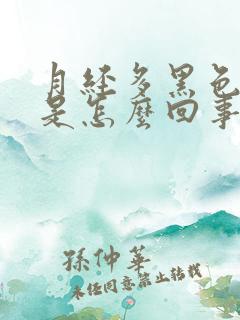 月经多黑色
是怎麼回事
孫仲華
未经同意禁止转载